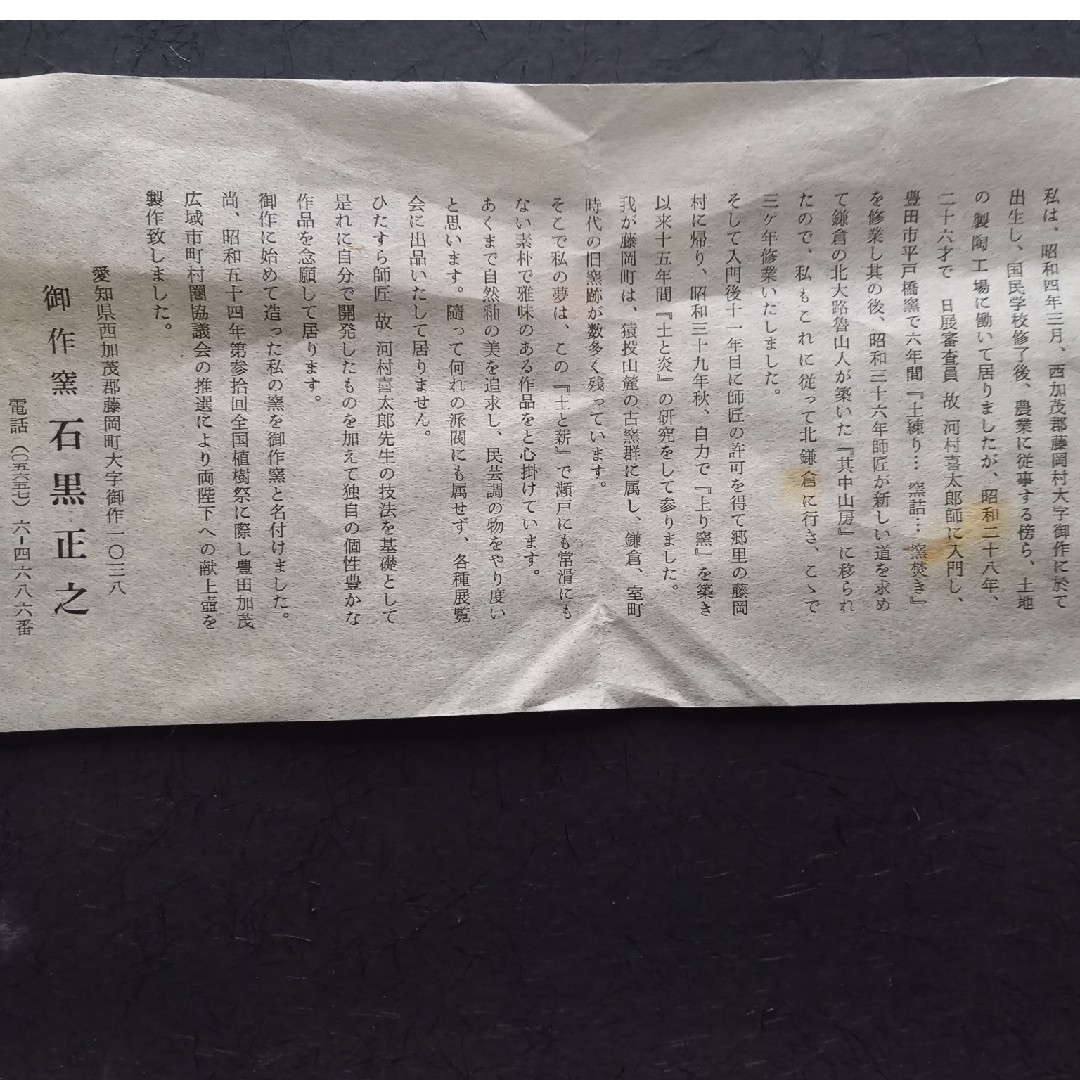 私は、昭和四年三月、西加茂郡藤岡村大字御作に於て
出生し、国民学校修了後、農業に従事する傍ら、土地
の製陶工場に働いて居りましたが、昭和二十八年、
二十六才で 日展審査員 故 河村喜太郎師に入門し、
豊田市平戸橋窯で六年間『土練り…窯詰…窯焚き』
を修業し其の後、昭和三十六年師匠が新しい道を求め
て鎌倉の北大路魯山人が築いた『其中山房』に移られ
たので、私もこれに従って北鎌倉に行き、こゝで
三ケ年修業いたしました。
そして入門後十一年目に師匠の許可を得て郷里の藤岡
村に帰り、昭和三十九年秋、自力で『上り窯』を築き
以来十五年間『土と炎』の研究をして参りました。
我が藤岡町は、猿投山麓の古窯群に属し、鎌倉、室町
時代の旧窯跡が数多く残っています。
そこで私の夢は、この『土と薪』で瀬戸にも常滑にも
ない素朴で雅味のある作品をと心掛けています。
あくまで自然釉の美を追求し、民芸調の物をやり度い
と思います。随って何れの派閥にも属せず、各種展覧
会に出品いたして居りません。
ひたすら師匠 故 河村喜太郎先生の技法を基礎として
是れに自分で開発したものを加えて独自の個性豊かな
作品を念願して居ります。
御作に始めて造った私の窯を御作窯と名付けました。
尚、昭和五十四年第参拾回全国植樹祭に際し豊田加茂
広域市町村圏協議会の推選により両陛下への献上壺を
製作致しました。
愛知県西加茂郡藤岡町大字御作一〇三八
御作窯 石黒正之
電話（〇五六五七）六-四六八六番